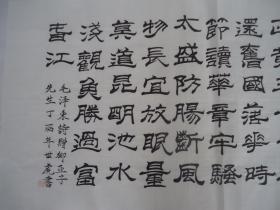 還舊國落花時
節讀華章牢騷
太盛防腸斷風
物長宜放眼量
莫道昆明池水
淺觀魚勝過富
春江
毛澤東詩贈柳亞子
先生丁酉年世虎書